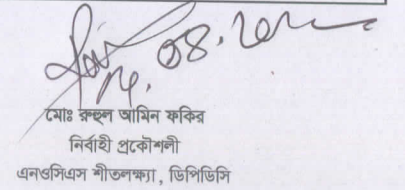 মোঃ রুহুল আমিন ফকির
নির্বাহী প্রকৌশলী
এনওসিএস শীতলক্ষ্যা, ডিপিডিসি